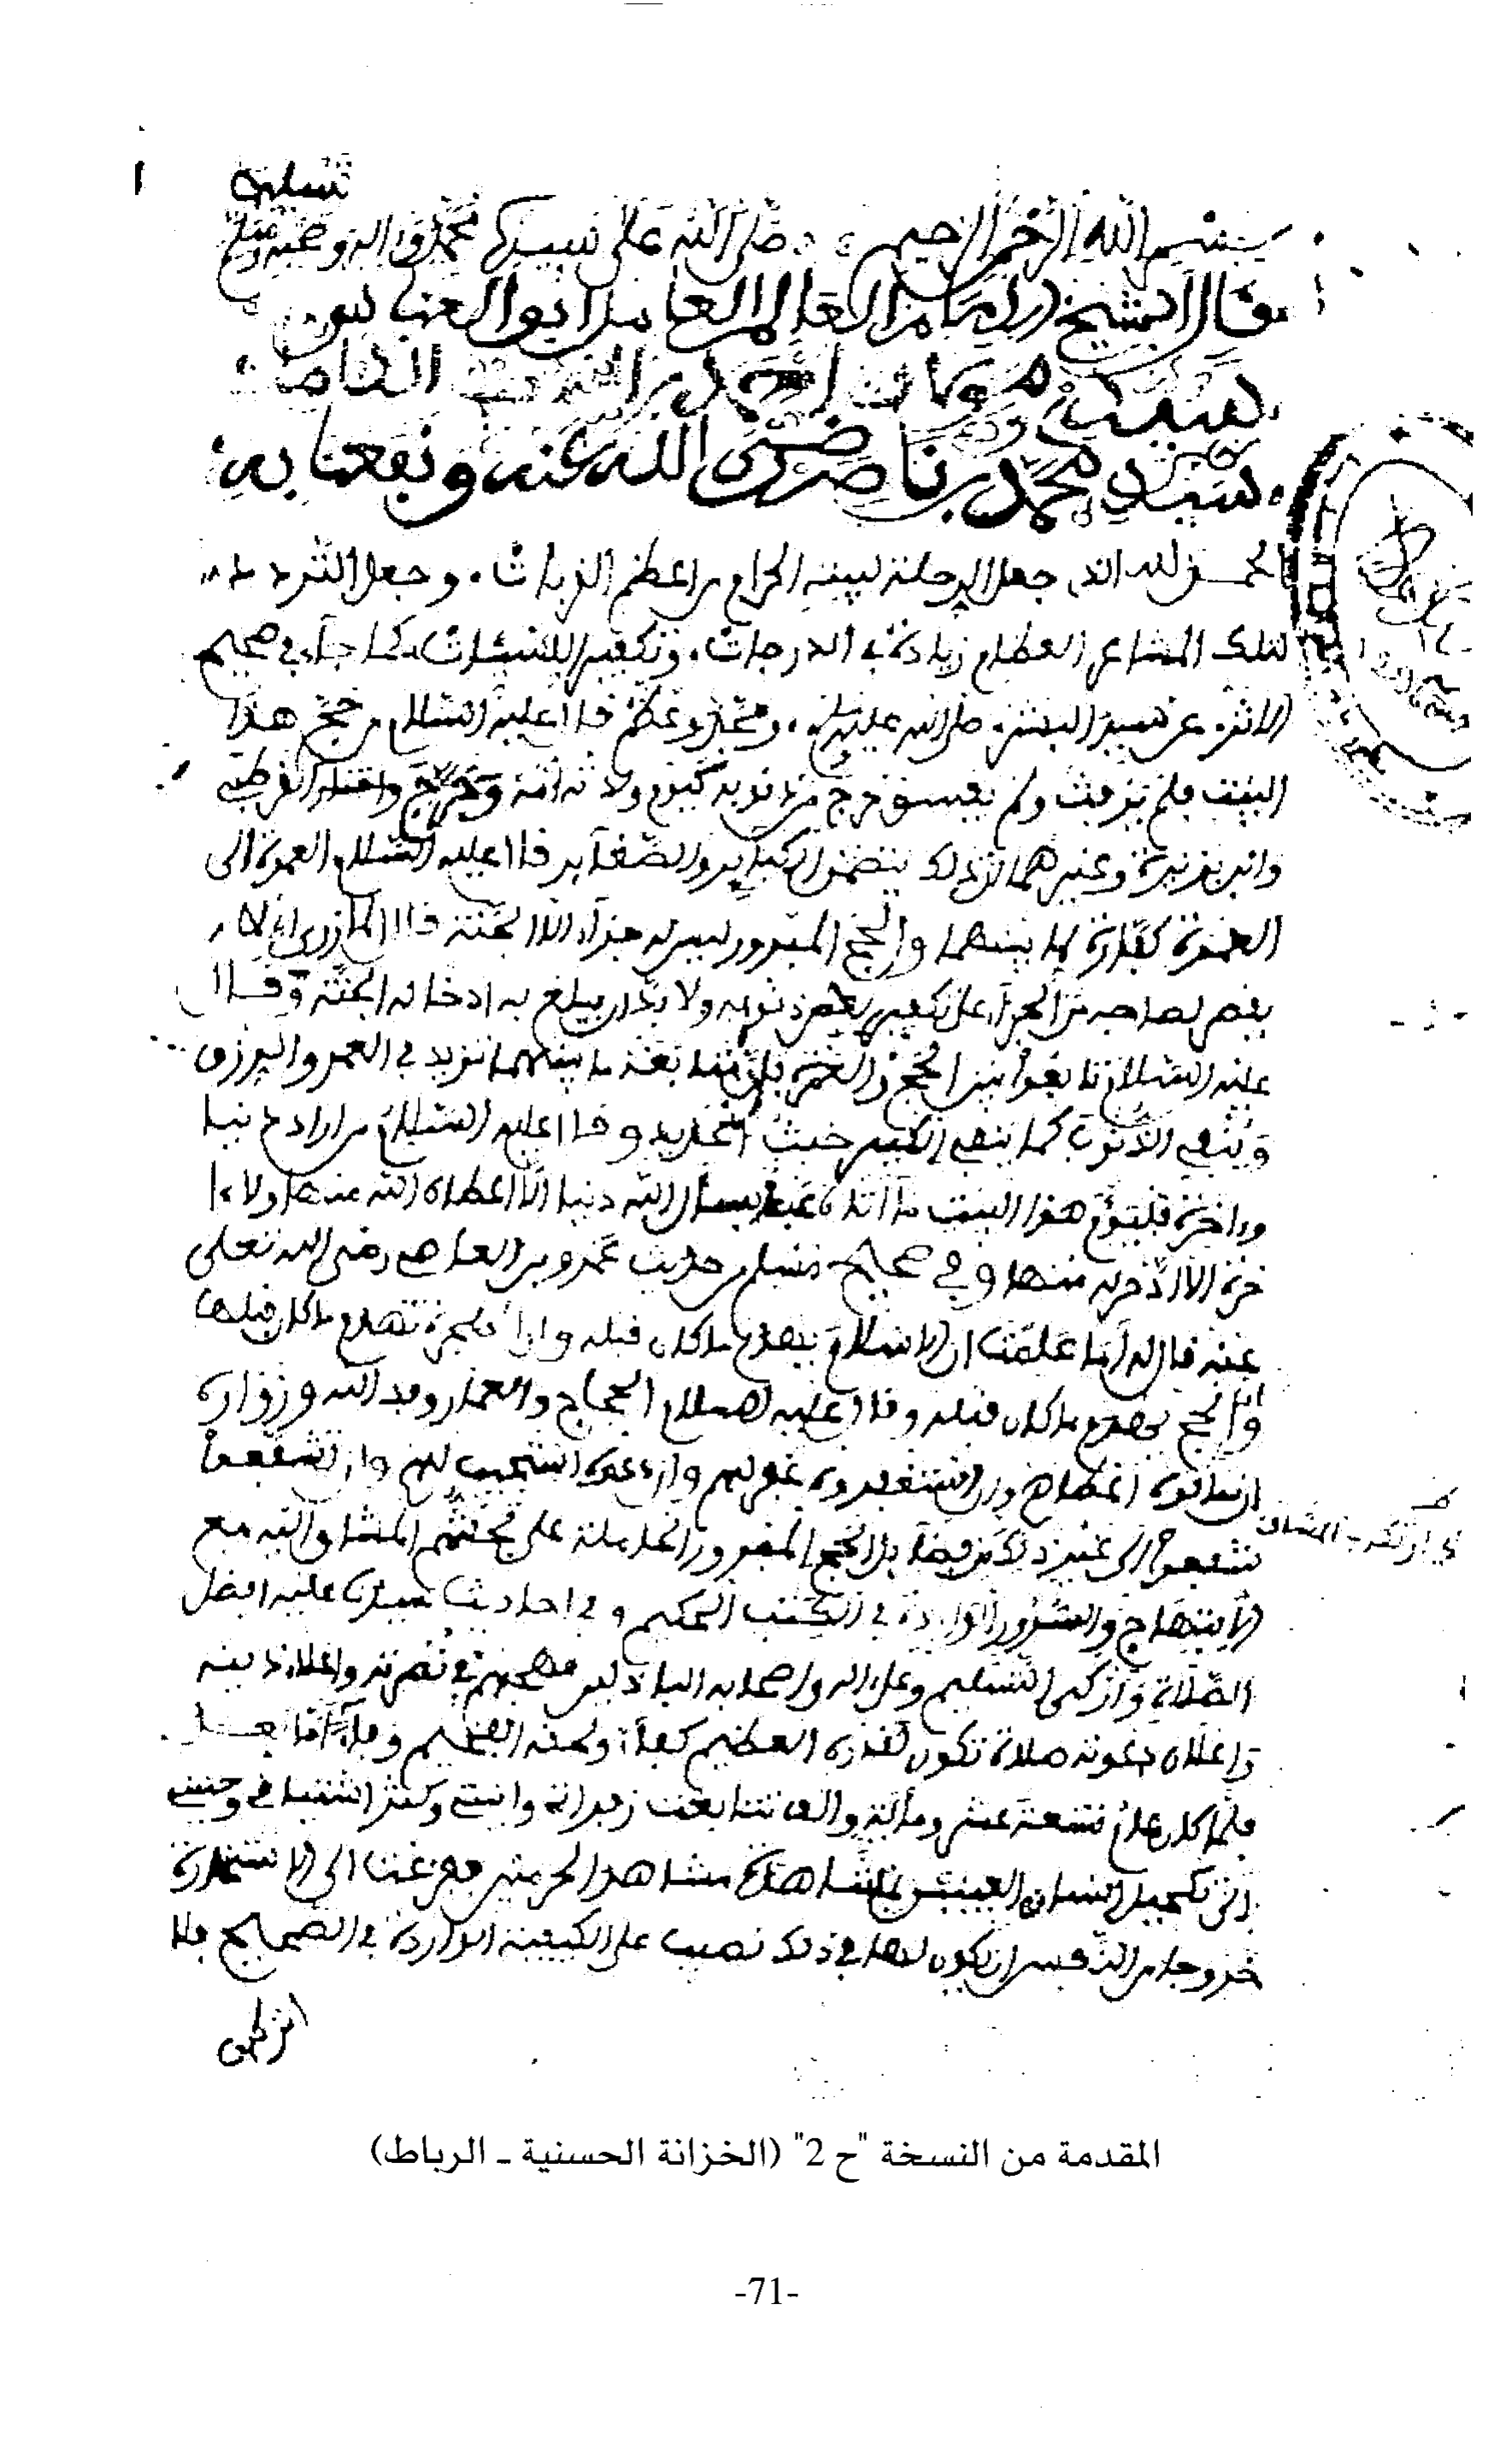 تسليما
بسم الله الرحمن الرحيم وصلى الله على سيدنا محمد واله وصحبه وسلم
قال الشيخ الامام العالم العامل ابو العباس
سيدي ومولاي احمد بن
سيدي محمد بن ناصر رضي الله عنه ونفعنا به
الحمد لله الذي جعل الرحلة لبيته الحرام من اعظم القربات وجعل التردد
لتلك المشاعر العظام زيادة في الدرجات وتكفير السيئات كما جاء في صحيح
الاثر عن سيد البشر صلى الله عليه وسلم ومجد وعظم قال عليه السلام من حج هذا
البيت فلم يرفث ولم يفسق خرج من ذنوبه كيوم ولدته امه واختار القرطبي
وابن بزيزة وغيرهما ان ذلك يتضمن الكبائر والصغائر قال عليه السلام العمرة الى
العمرة كفارة لما بينهما والحج المبرور ليس له جزاء الا الجنة قال المازري اي لا
يقصر لصاحبه من الجزاء على تكفير بعض ذنوبه ولا بد ان يبلغ به ادخاله الجنة وقال
عليه السلام تابعوا بين الحج والعمرة فان متابعة ما بينهما تزيد في العمر والرزق
وتنفي الذنوب كما ينفي الكير خبث الحديد وقال عليه السلام من اراد دنيا
واخرة فليؤم هذا البيت ما اتاه عبد يسأل الله دنيا الا اعطاه الله منها ولا ءا
خرة الا ادخر له منها وفي صحيح مسلم من حديث عمرو بن العاصي رضي الله تعلى
عنه قال له أما علمت ان الاسلام يهدم ما كان قبله وان الهجرة تهدم ما كان قبلها
وان الحج يهدم ما كان قبله وقال عليه السلام الحجاج والعمار وفد الله وزواره
ان سالوه اعطاهم وان استغفروه غفر لهم وان دعوه استجيب لهم وان تشفعوا
شفعوا الى غير ذلك من فضائل الحج المبرور الحاملة على تجشم المشاق اليه مع
الابتهاج والسرور الواردة في الكتب الحكيم وفي احاديث سيدنا عليه افضل
الصلاة وازكى التسليم وعلى اله واصحابه الباذلين مهجهم في نصرته واعلان دينه
واعلان دعوته صلاة تكون لقدره العظيم كفاء ولحقه الفخيم وفاء اما بعد
فلما كان عام تسعة عشر ومائة والف تتابعت زفراتي وانتي وكثر اشتياقي وحنيني
الى تكحيل انسان العينين بمشاهدة مشاهد الحرمين ففزعنا الى الاستخارة
خروجا من النفس ان يكون لها في ذلك نصيب على الكيفية الواردة في الصحيح فلا
المقدمة من النسخة "ح 2" (الخزانة الحسنية ـ الرباط)
-71-